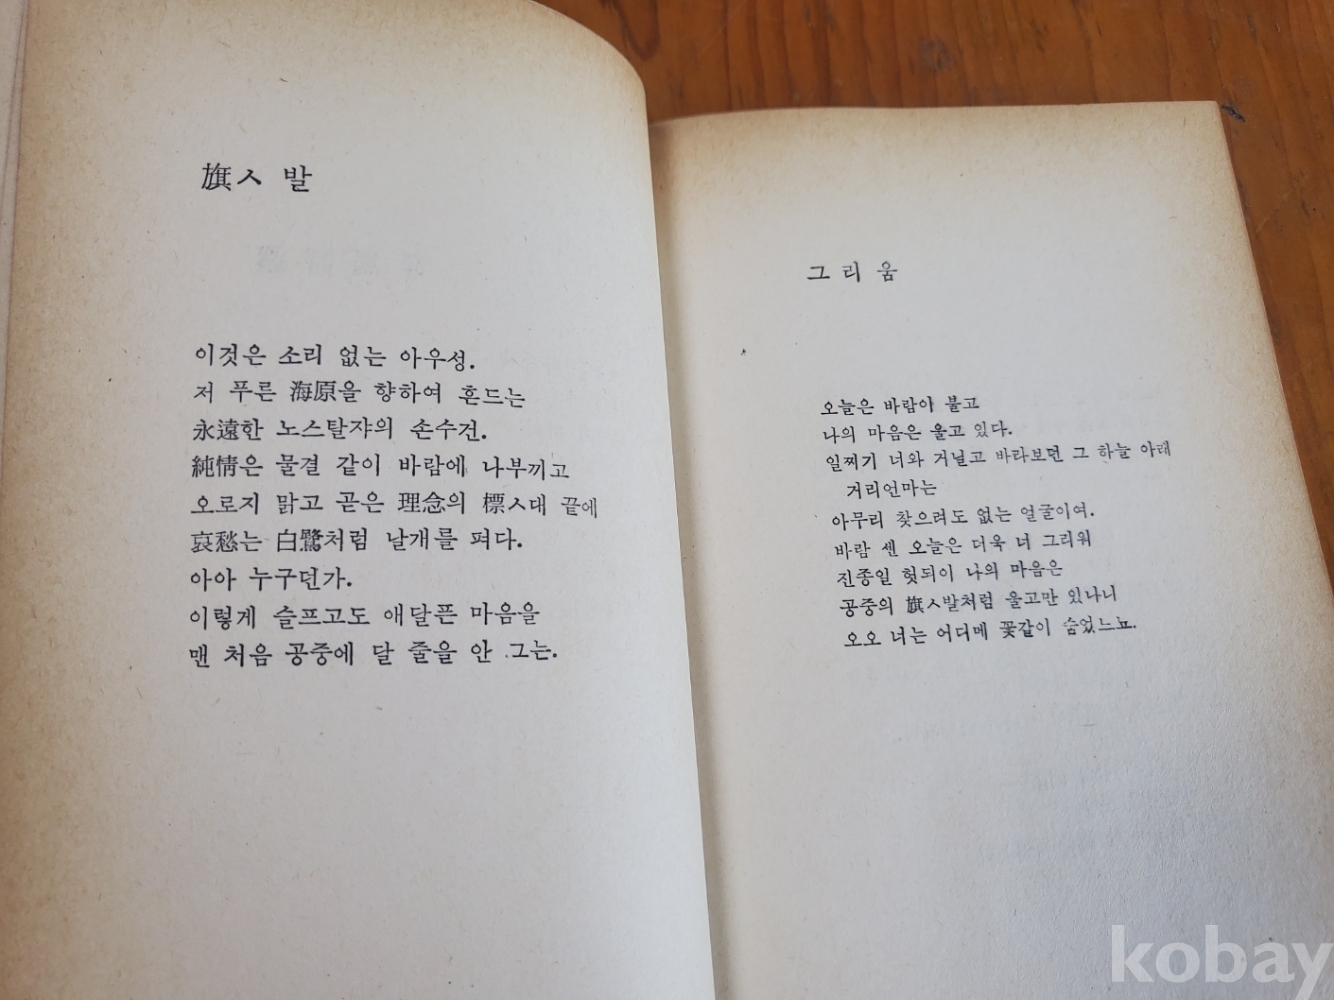 旗ㅅ발
이것은 소리 없는 아우성.
저 푸른 海原을 향하여 흔드는
永遠한 노스탈쟈의 손수건.
純情은 물결 같이 바람에 나부끼고
오로지 맑고 곧은 理念의 標ㅅ대 끝에
哀愁는 白鷺처럼 날개를 펴다.
아아 누구던가.
이렇게 슬프고도 애달픈 마음을
맨 처음 공중에 달 줄을 안 그는.
그리움
오늘은 바람이 불고
나의 마음은 울고 있다.
일찌기 너와 거닐고 바라보던 그 하늘 아래
거리언마는
아무리 찾으려도 없는 얼굴이여.
바람 센 오늘은 더욱 너 그리워
진종일 헛되이 나의 마음은
공중의 旗ㅅ발처럼 울고만 있나니
오오 너는 어디메 꽃같이 숨었느뇨.
kobay